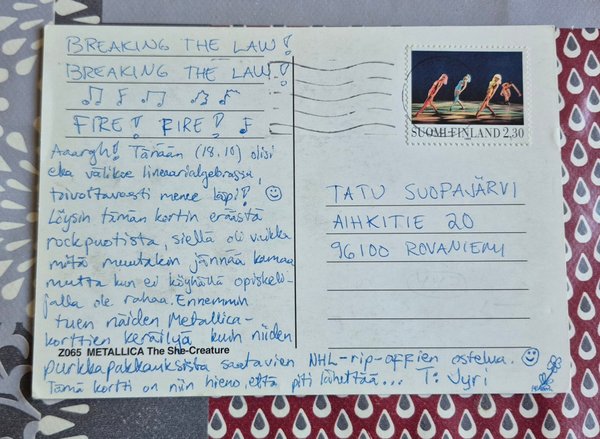 BREAKING THE LAW!
BREAKING THE LAW!
FIRE! FIRE!
Aaargh! Tänään (18.10) olisi
eka välikoe lineaarialgebrassa,
toivottavasti menee läpi!
Löysin tämän kortin eräistä
rockpuotista, siellä oli vaikka
mitä muutakin jännää kamaa
mutta kun ei köyhällä opiskeli-
jalla ole rahaa. Ennemmin
tuen näiden Metallica-
korttien keräilyä kuin niiden
purkkapakkauksista saatavien NHL-rip-offien ostelua.
Tämä kortti on niin hieno, että piti lähettää... T: Jyri
Z065 METALLICA The She-Creature
SUOMI-FINLAND 2,30
TATU SUOPAJÄRVI
AIHKITIE 20
96100 ROVANIEMI